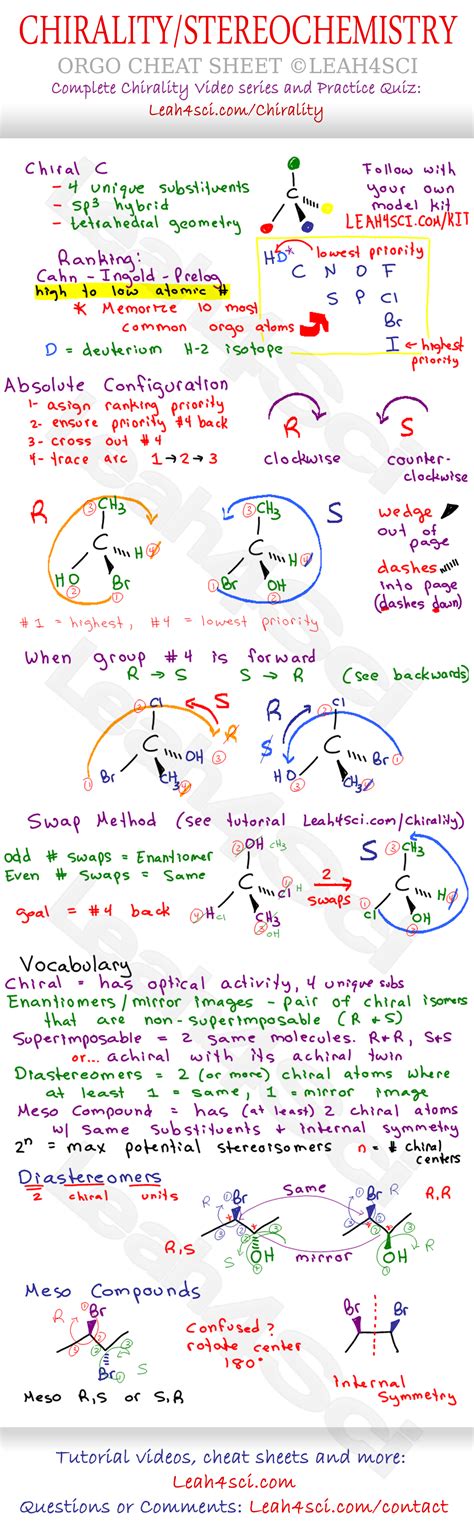 CHIRALITY/STEREOCHEMISTRY
ORGO CHEAT SHEET ©LEAH4SCI
Complete Chirality Video series and Practice Quiz:
Leah4sci.com/Chirality
Chiral C
- 4 unique substituents
- sp3 hybrid
- tetrahedral geometry
C
Follow with
your own
model kit
LEAH4SCI.COM/KIT
Ranking:
Cahn - Ingold - Prelog
high to low atomic #
* Memorize 10 most
common orgo atoms
D = deuterium H-2 isotope
HD* lowest priority
C N O F
S P Cl
Br
I ← highest
priority
Absolute Configuration
1- asign ranking priority
2- ensure priority #4 back
3- cross out #4
4- trace arc 1→2→3
R
clockwise
S
counter-
clockwise
R
3 CH3
C
H 4
HO
2
Br
1
3 CH3
C
H 4
Br
1
OH
2
S
wedge
out of
page
dashes
into page
(dashes down)
#1 = highest, #4 = lowest priority
When group #4 is forward
R → S S → R (see backwards)
2 Cl
S
R
C
OH
3
Br
1
CH3 4
R
S
2 Cl
C
Br 1
HO
3
CH3 4
Swap Method (see tutorial Leah4sci.com/Chirality)
odd # swaps = Enantiomer
Even # Swaps = Same
goal = #4 back
2 OH CH3
C
Cl 1 H
4 H Cl
CH3
3 OH
2
swaps
S
3 CH3
C
H 4
Cl
1
OH
2
Vocabulary
Chiral = has optical activity, 4 unique subs
Enantiomers/mirror images - pair of chiral isomers
that are non-superimposable (R & S)
Superimposable = 2 same molecules. R&R, S&S
or... achiral with its achiral twin
Diastereomers = 2 (or more) chiral atoms where
at least 1 = same, 1 = mirror image
Meso Compound = has (at least) 2 chiral atoms
w/ same Substituents + internal symmetry
2^n = max potential stereoisomers n = # chiral
centers
Diastereomers
2 chiral units
R
Br
R,S
S
OH
Same
mirror
R
Br
R,R
OH
R
Meso Compounds
R
Br
Br
S
Meso R,S or S,R
Confused?
rotate center
180°
Br Br
Internal
Symmetry
Leah4Sci
Leah4Sci
Leah4Sci
Leah4Sci
Tutorial videos, cheat sheets and more:
Leah4sci.com
Questions or Comments: Leah4sci.com/contact